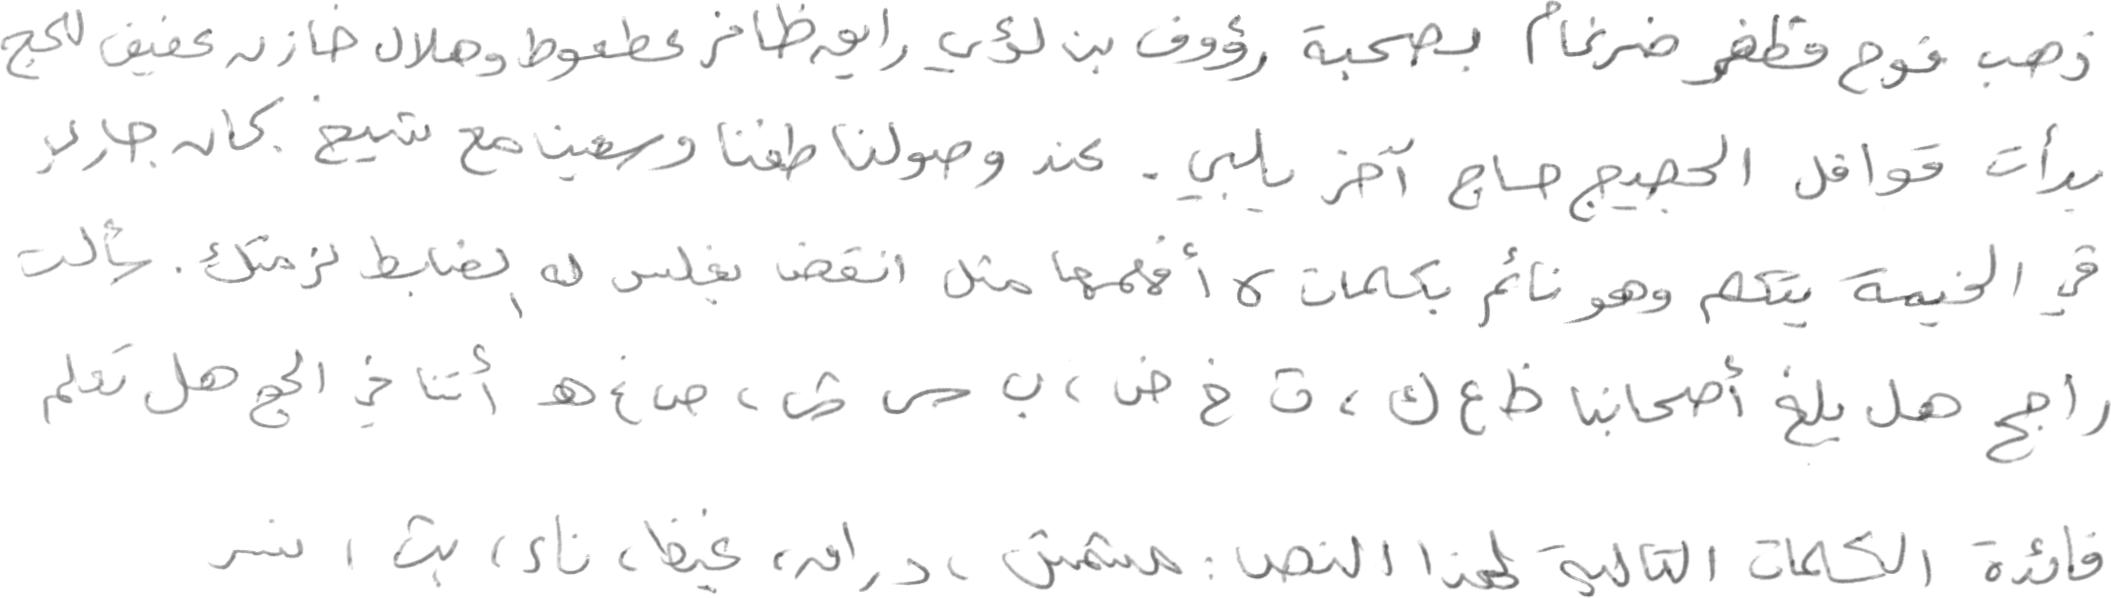 ذهب نوح مظفر ضرغام بصحبة رؤوف بن لؤي رايق ظافر عطعوط وهلال خازن عفيف للحج
بدأت قوافل الحجيج حاج آخر يلبي. عند وصولنا طفنا وسعينا مع شيخ كان جاري
في الخيمة يتكلم وهو نائم بكلمات لا أفهمها مثل انقض بغلس له الضابط لزمتك. سألت
راجح هل بلغ أصحابنا ظ ع ك، ت خ ض، ب س ش، ص غ هـ أثنا في الحج هل تعلم
فائدة الكلمات التالية لهذا النص: مشمش، دراق، غيظ، ناء، بث، نسر